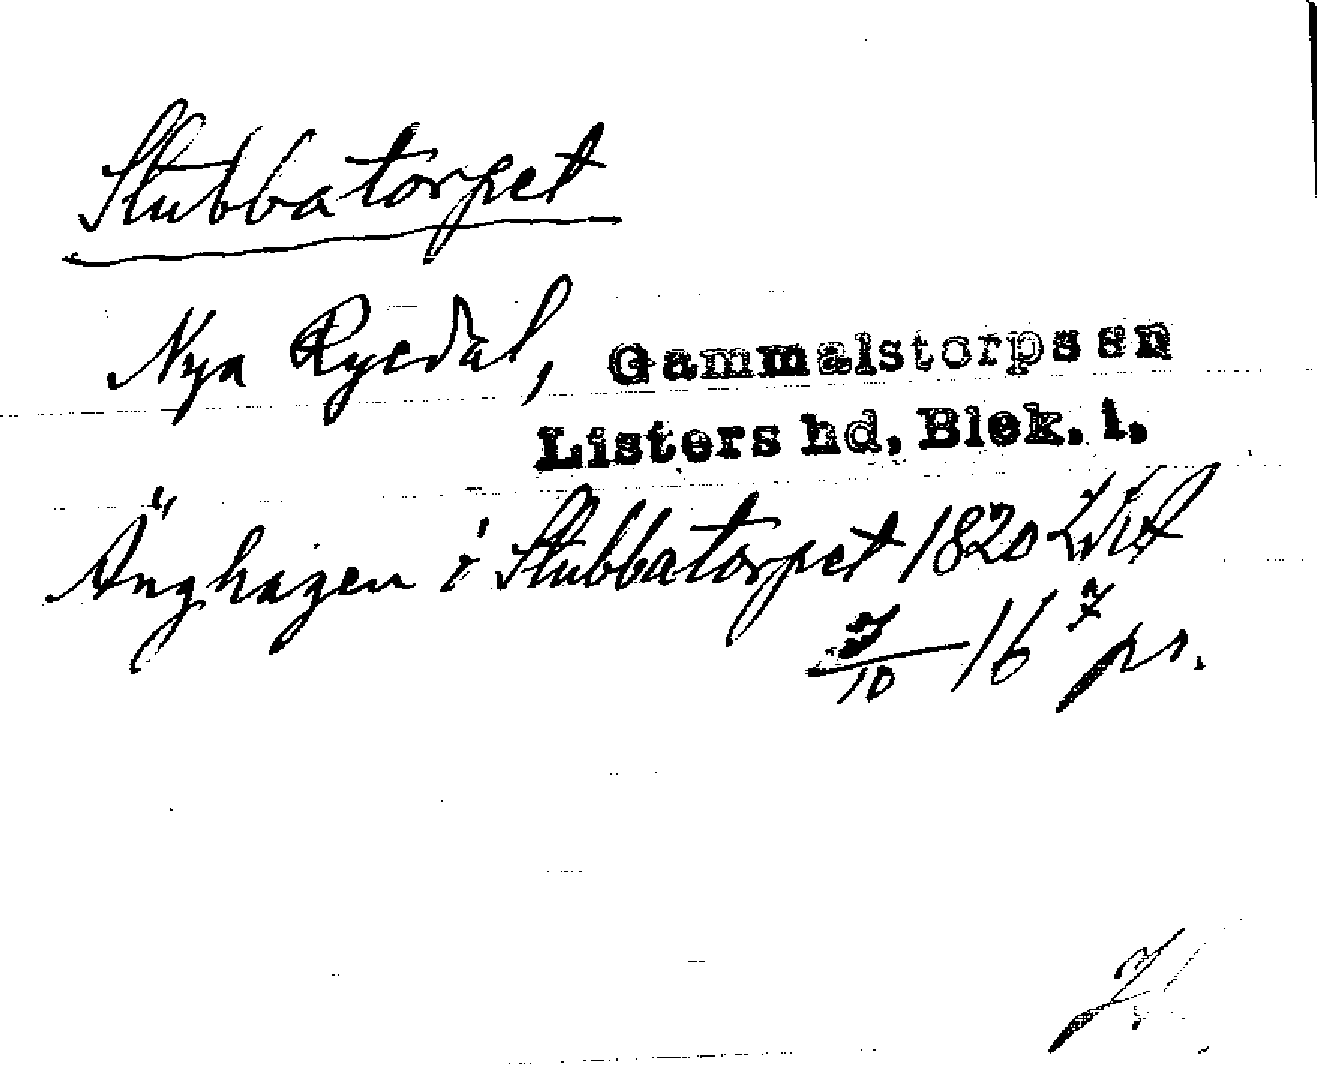 Stubbatorpet
Nya Ryedal, Gammalstorps sn
Listers hd, Blek. l.
Änghagen i Stubbatorpet 1820
7/10 16 7 ps.